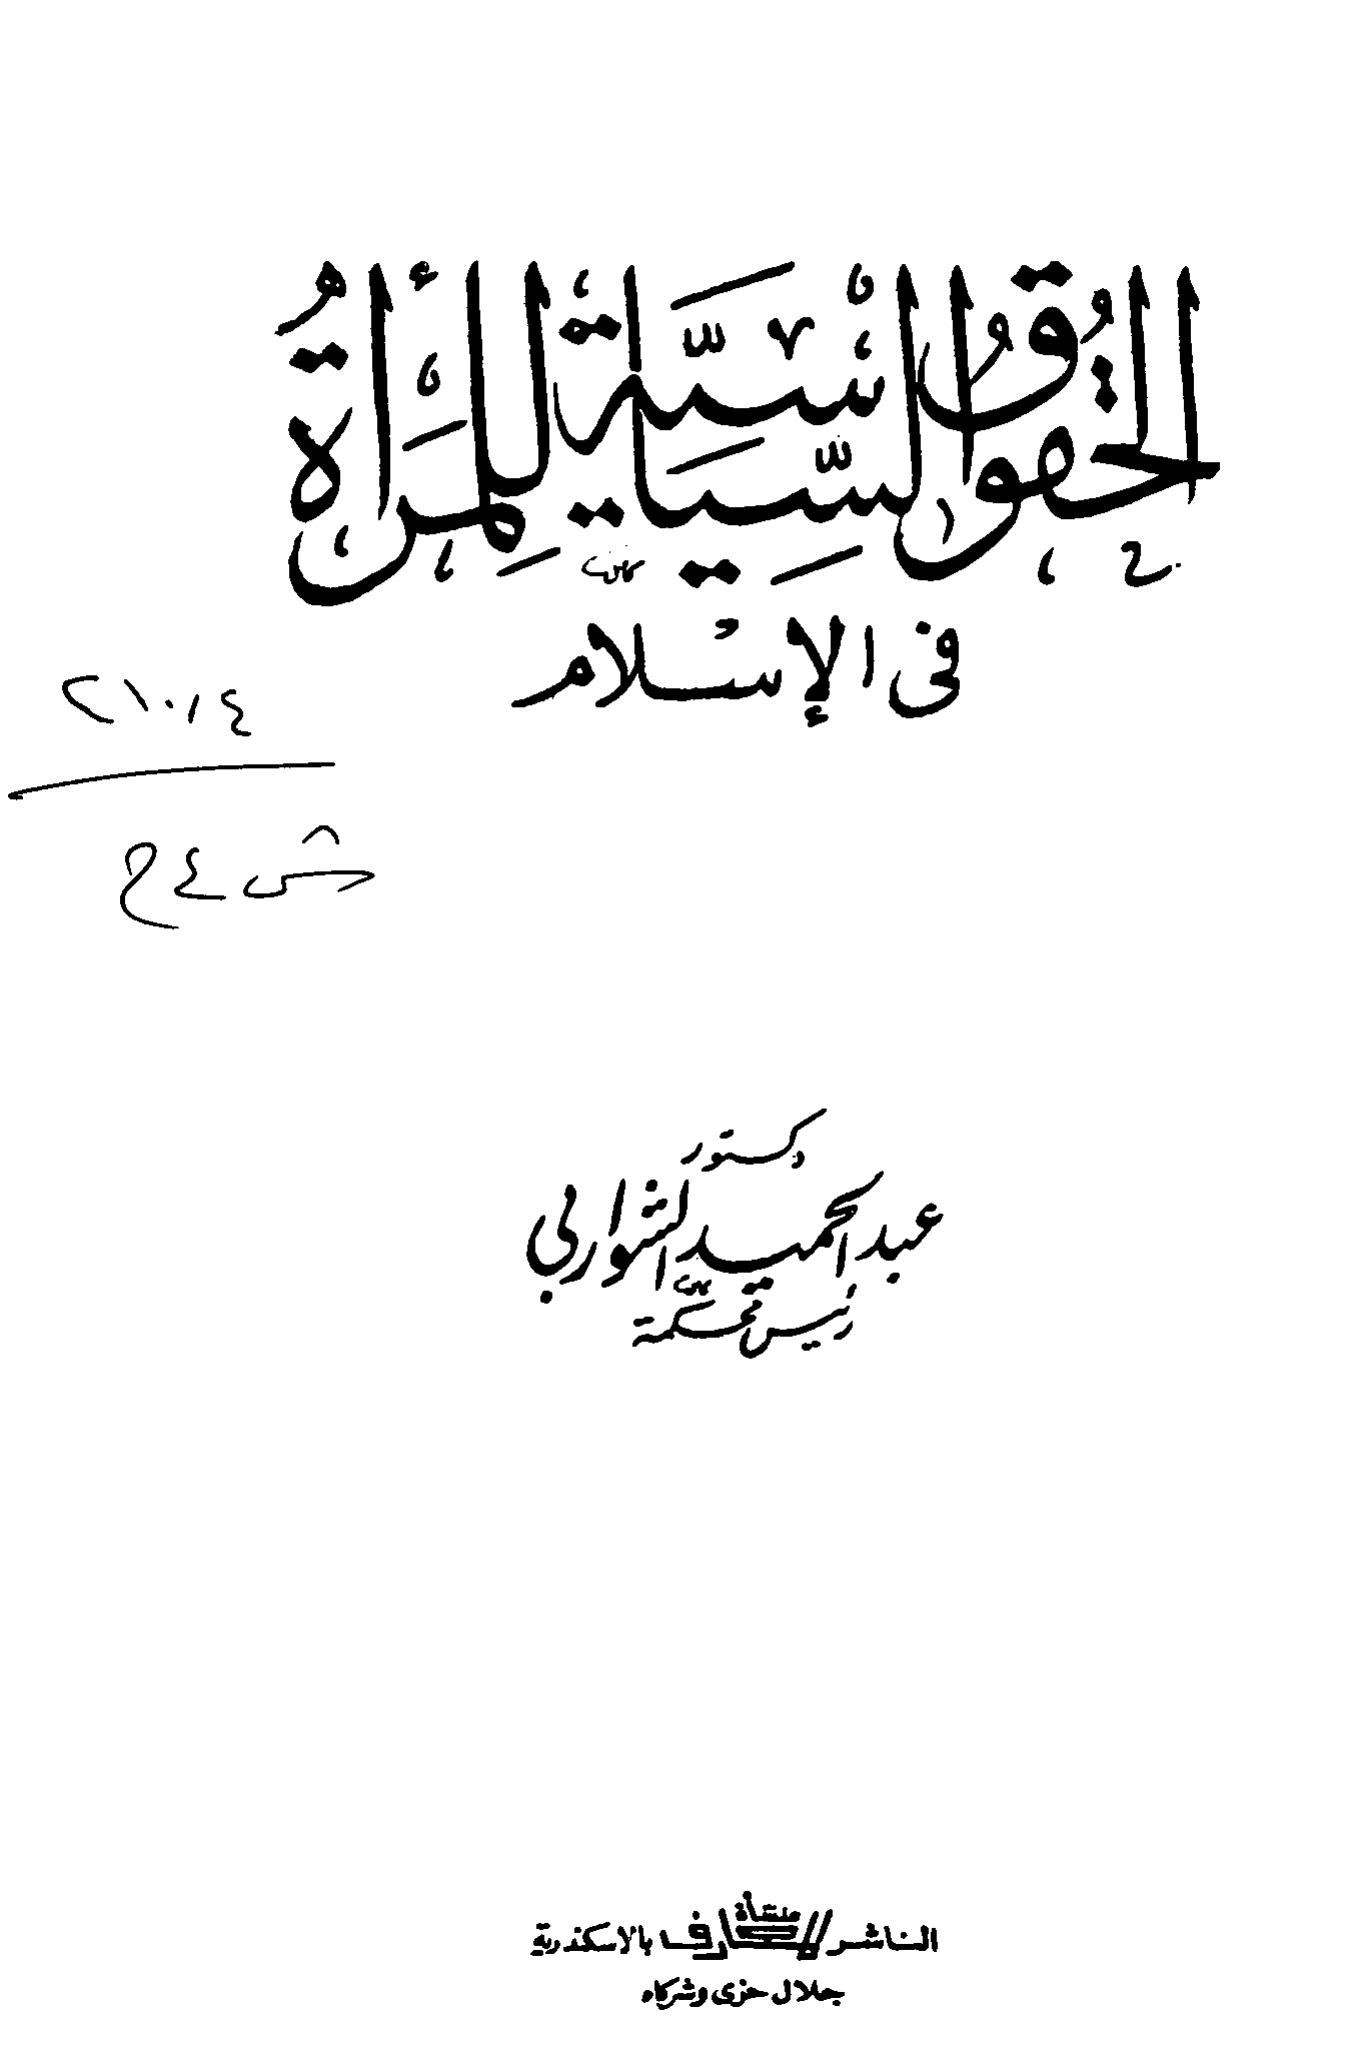 الحقوق السياسية للمرأة
في الإسلام
٢١٠,٤
ش ع ح
دكتور
عبد الحميد الشواربي
رئيس محكمة
الناشر منشأة المعارف بالاسكندرية
جلال حزى وشركاه